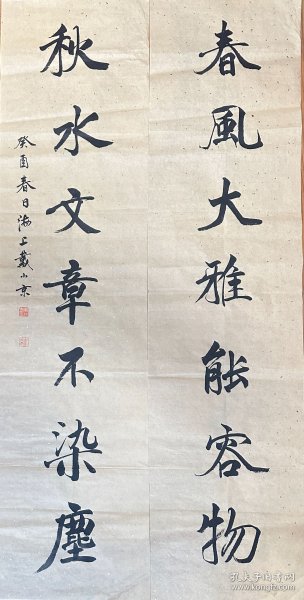 春風大雅能容物
秋水文章不染塵
癸酉春日海上戴小京
孔夫子旧书网
www.kongfz.com